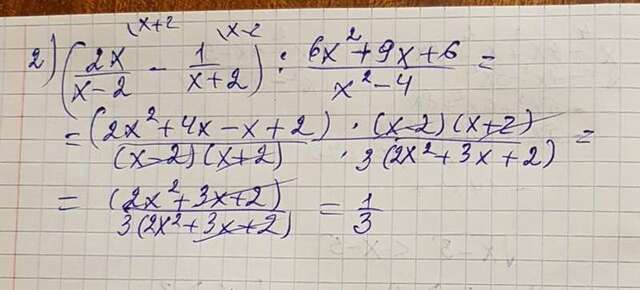 \x+2 \x-2
2) (2x/(x-2) - 1/(x+2)) : (6x²+9x+6)/(x²-4) =
= (2x²+4x-x+2) · (x-2)(x+2) / (x-2)(x+2) · 3(2x²+3x+2) =
= (2x²+3x+2) / 3(2x²+3x+2) = 1/3